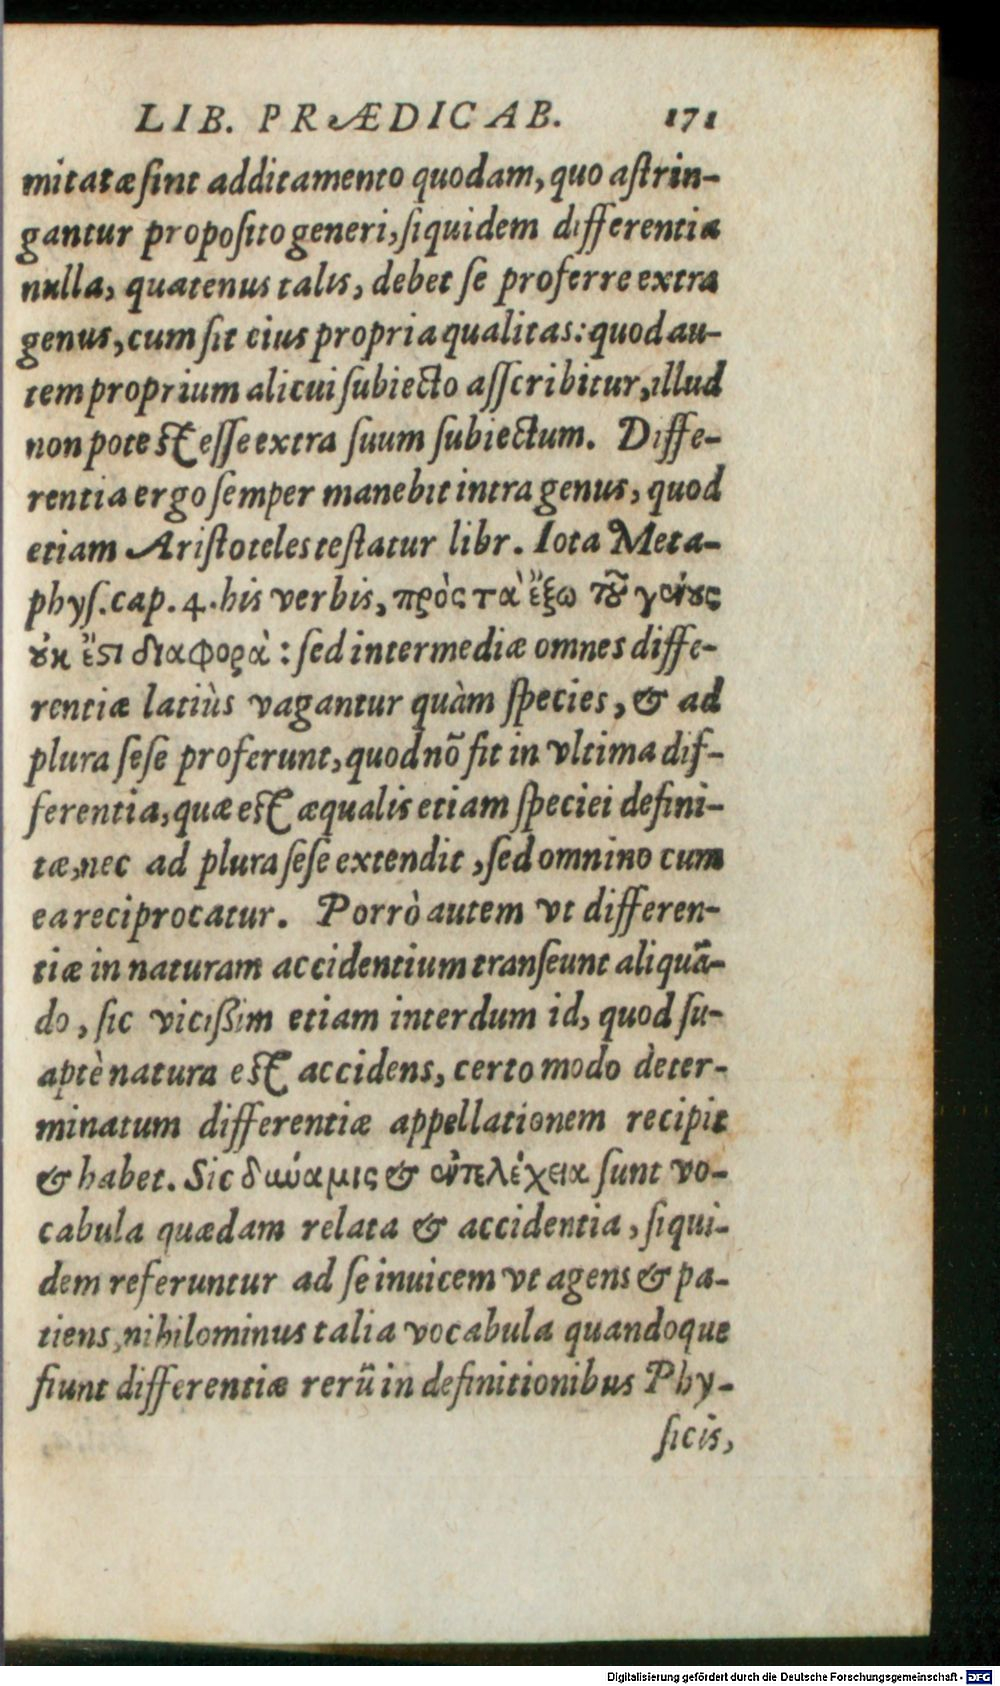 LIB. PRÆDICAB. 171
mitatæ ſint additamento quodam, quo aſtrin-
gantur propoſito generi, ſiquidem differentia
nulla, quatenus talis, debet ſe proferre extra
genus, cum ſit eius propria qualitas: quod au-
tem proprium alicui ſubiecto aſſcribitur, illud
non poteſt eſſe extra ſuum ſubiectum. Diffe-
rentia ergo ſemper manebit intra genus, quod
etiam Ariſtoteles teſtatur libr. Iota Meta-
phyſ. cap. 4. his verbis, πρὸς τὰ ἔξω τοῦ γένους
οὐκ ἔστι διαφορὰ: ſed intermediæ omnes diffe-
rentiæ latiùs vagantur quàm ſpecies, & ad
plura ſeſe proferunt, quod nõ fit in vltima dif-
ferentia, quæ eſt æqualis etiam ſpeciei defini-
tæ, nec ad plura ſeſe extendit, ſed omnino cum
ea reciprocatur. Porrò autem vt differen-
tiæ in naturam accidentium tranſeunt aliquã-
do, ſic viciſſim etiam interdum id, quod ſu-
aptè natura eſt accidens, certo modo dèter-
minatum differentiæ appellationem recipit
& habet. Sic δύναμις & ἐντελέχεια ſunt vo-
cabula quædam relata & accidentia, ſiqui-
dem referuntur ad ſe inuicem vt agens & pa-
tiens, nihilominus talia vocabula quandoque
fiunt differentiæ rerũ in definitionibus Phy-
ſicis,
Digitalisierung gefördert durch die Deutsche Forschungsgemeinschaft - DFG